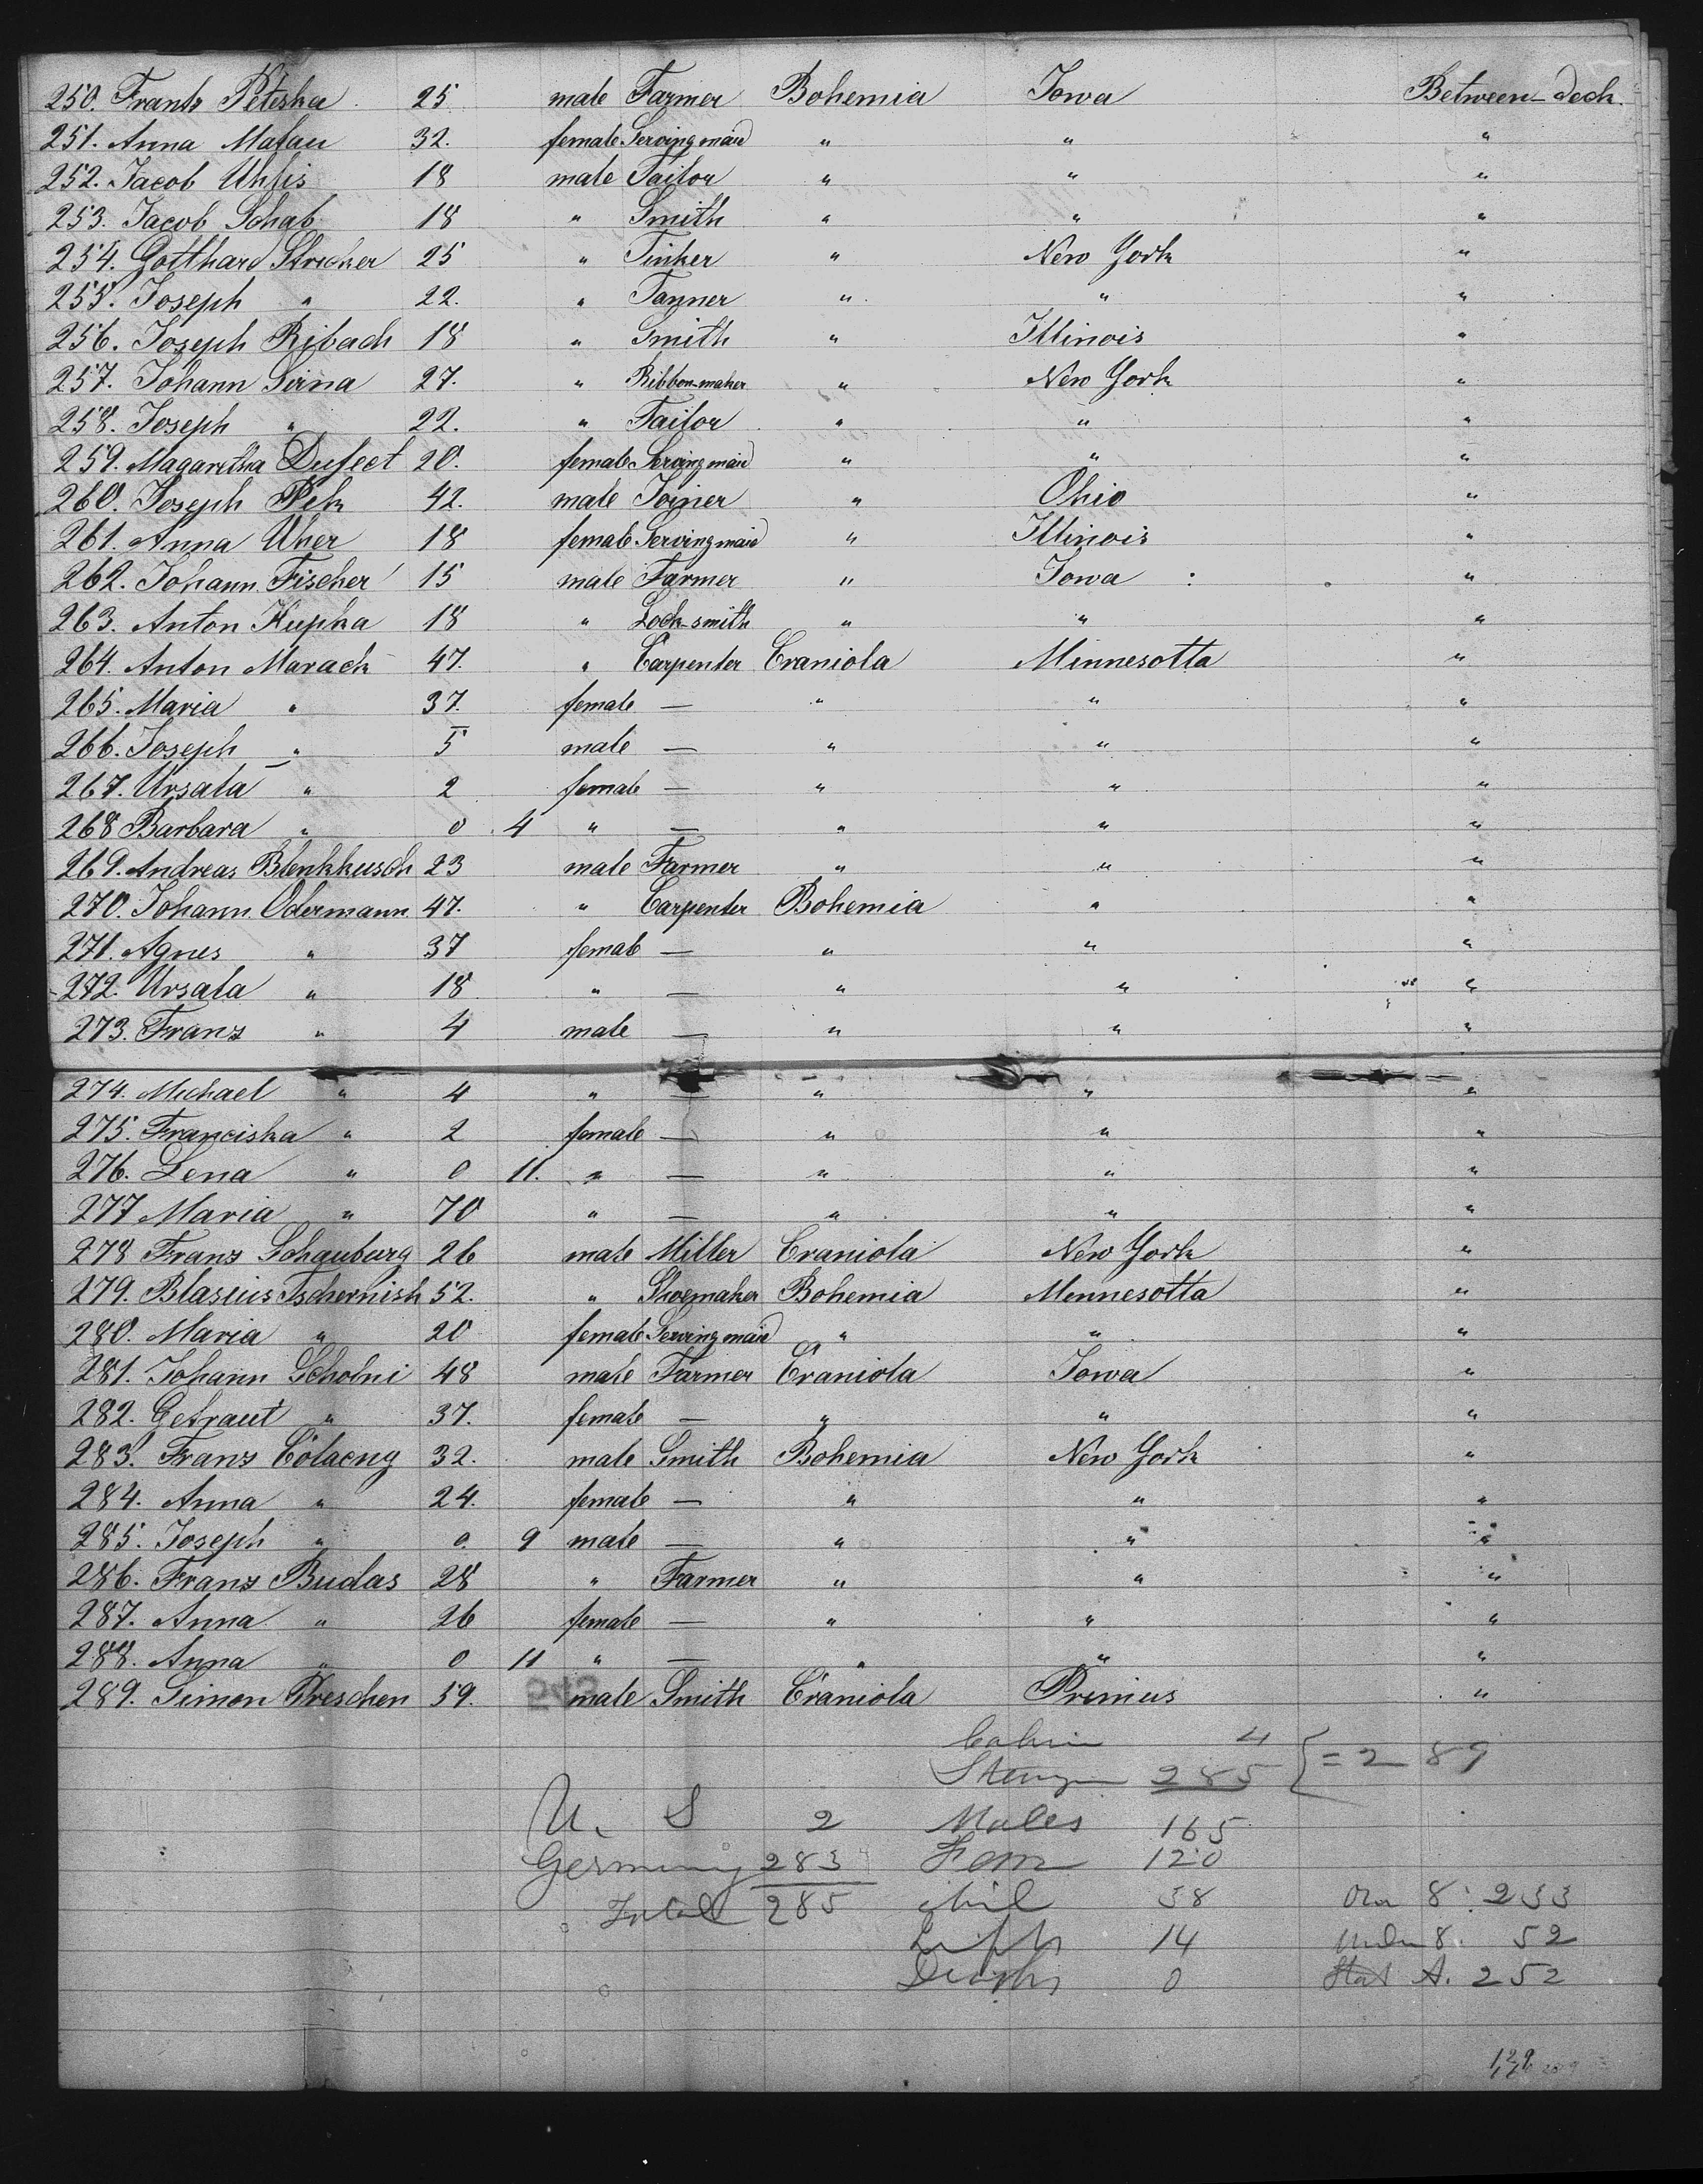 250. Frantz Peteska 25 male Farmer Bohemia Iowa Between-deck.
251. Anna Malau 32. female Servingmaid " " "
252. Jacob Uhlis 18 male Tailor " " "
253. Jacob Schab 18 " Smith " " "
254. Gotthard Stricker 25 " Tinker " New York "
255. Joseph " 22. " Tanner " " "
256. Joseph Ribach 18 " Smith " Illinois "
257. Johann Sirna 27. " Ribbon-maker " New York "
258. Joseph " 22. " Tailor " " "
259. Magaretha Dufect 20. female Servingmaid " " "
260. Joseph Pek 42. male Joiner " Ohio "
261. Anna Uher 18 female Servingmaid " Illinois "
262. Johann Fischer 15 male Farmer " Iowa "
263. Anton Kupka 18 " Lock-smith " " "
264. Anton Marack 47. " Carpenter Craniola Minnesotta "
265. Maria " 37. female — " " "
266. Joseph " 5 male — " " "
267. Ursala " 2 female — " " "
268 Barbara " 0 4 " — " " "
269. Andreas Blenkkusch 23 male Farmer " " "
270. Johann Odermann 47. " Carpenter Bohemia " "
271. Agnes " 37 female — " " "
272. Ursala " 18 " — " " "
273. Franz " 4 male — " " "
274. Michael " 4 " — " " "
275. Franciska " 2 female — " " "
276. Lena " 0 11. " — " " "
277 Maria " 70 " — " " "
278 Franz Schauburg 26 male Miller Craniola New York "
279. Blasius Tschernish 52. " Shoemaker Bohemia Minnesotta "
280. Maria " 20 female Servingmaid " " "
281. Johann Scholni 48 male Farmer Craniola Iowa "
282. Getraut " 37. female — " " "
283. Franz Colaeng 32. male Smith Bohemia New York "
284. Anna " 24. female — " " "
285. Joseph " 0. 9 male — " " "
286. Franz Budas 28 " Farmer " " "
287. Anna " 26 female — " " "
288. Anna " 0 11 " — " " "
289. Simon Preschen 59. male Smith Craniola Primus "
Cabin 4
Steerge 285 } = 289
U. S 2 Males 165
Germany 283 Fem 120
Total 285 Chil 38 Over 8. 233
Infts 14 Under 8. 52
Deaths 0 Stat A. 252
129